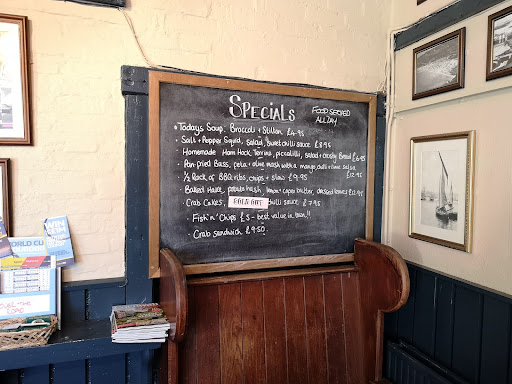 SPECIALS
FOOD SERVED
ALL DAY
Todays Soup: Broccoli + Stilton £4.95
Salt + Pepper Squid, salad, sweet chilli sauce £8.95
Homemade Ham Hock Terrine, piccalilli, salad + crusty Bread £6.95
Pan-fried Bass, feta + olive mash with a mango, chilli + lime salsa £12.95
1/2 Rack of BBQ ribs, chips + slaw £9.95
Baked Hake, potato hash, lemon + caper butter, dressed leaves £12.95
Crab Cakes, SOLD OUT chilli sauce £7.95
Fish 'n' Chips £5 - best value in town!!
Crab Sandwich £9.50
WORLD CUP